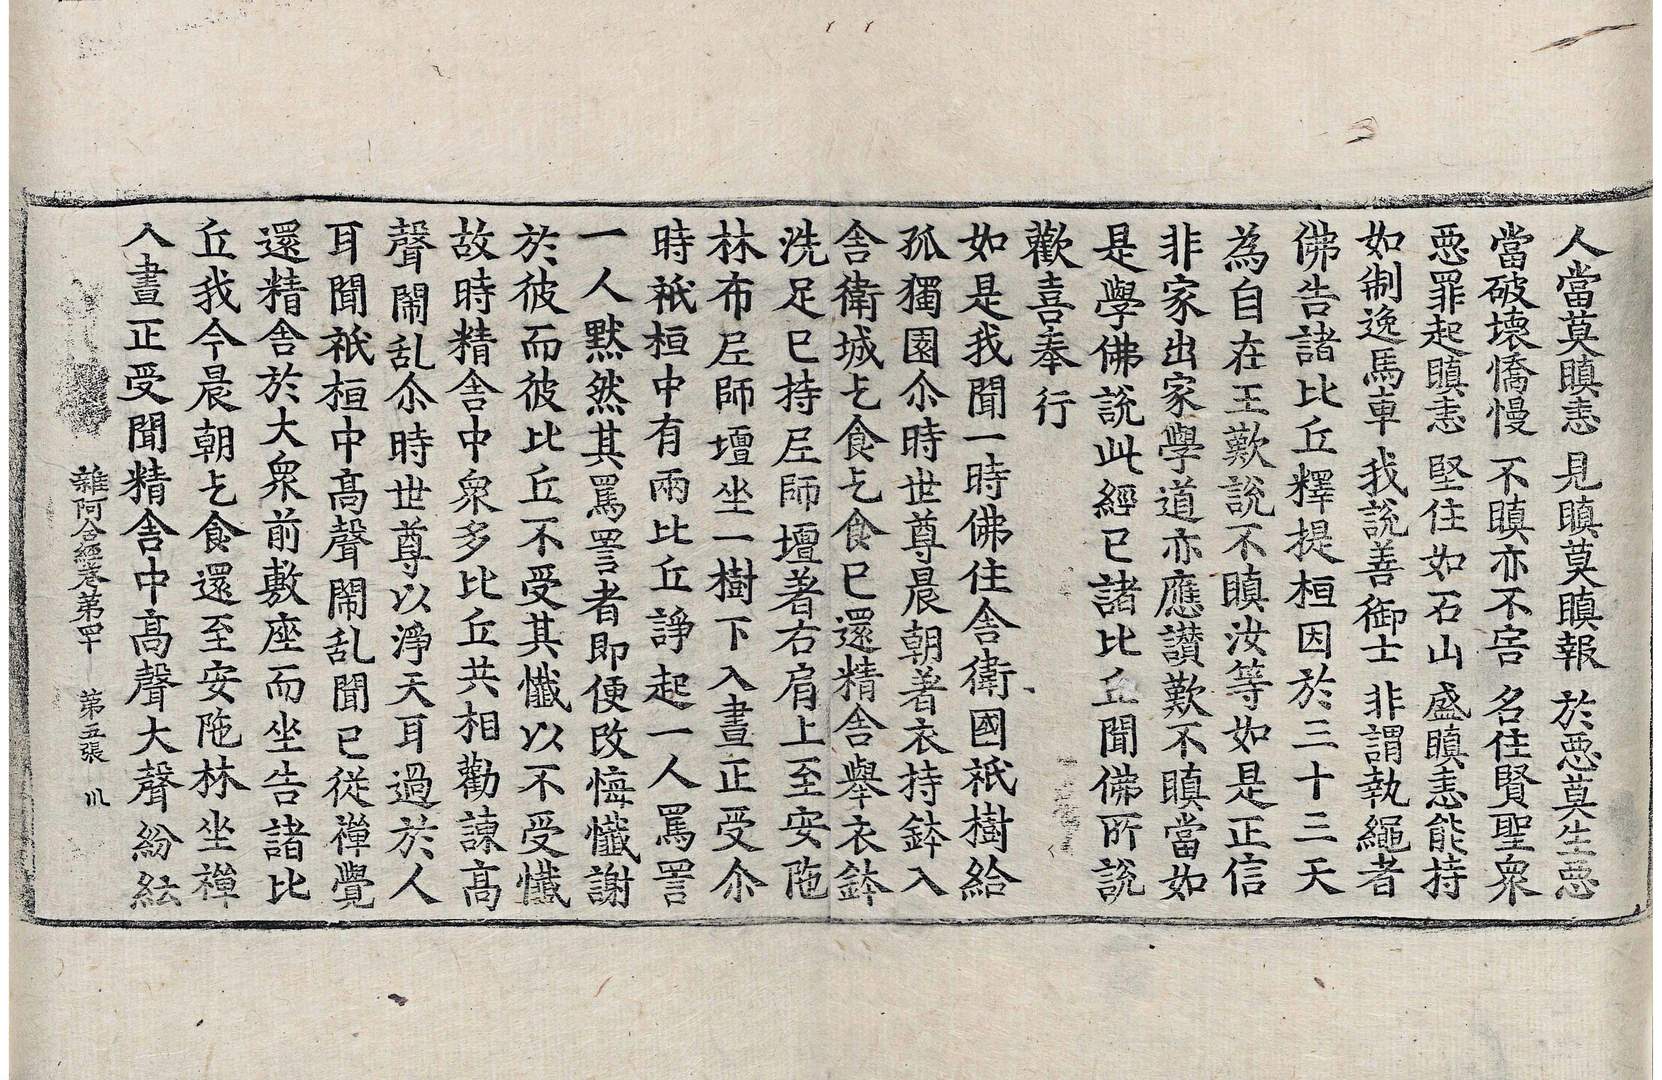 人當莫瞋恚 見瞋莫瞋報 於惡莫生惡
當破壞憍慢 不瞋亦不害 名住賢聖衆
惡罪起瞋恚 堅住如石山 盛瞋恚能持
如制逸馬車 我說善御士 非謂執繩者
佛告諸比丘釋提桓因於三十三天
為自在王歎說不瞋汝等如是正信
非家出家學道亦應讚歎不瞋當如
是學佛說此經已諸比丘聞佛所說
歡喜奉行
如是我聞一時佛住舍衛國祇樹給
孤獨園尒時世尊晨朝著衣持鉢入
舍衛城乞食乞食已還精舍舉衣鉢
洗足已持尼師壇著右肩上至安陁
林布尼師壇坐一樹下入晝正受尒
時祇桓中有兩比丘諍起一人罵詈
一人默然其罵詈者即便改悔懺謝
於彼而彼比丘不受其懺以不受懺
故時精舍中衆多比丘共相勸諫高
聲鬧乱尒時世尊以淨天耳過於人
耳聞祇桓中高聲鬧乱聞已從禪覺
還精舍於大衆前敷座而坐告諸比
丘我今晨朝乞食還至安陁林坐禪
入晝正受聞精舍中高聲大聲紛紜
雜阿含經卷第四十 第五張